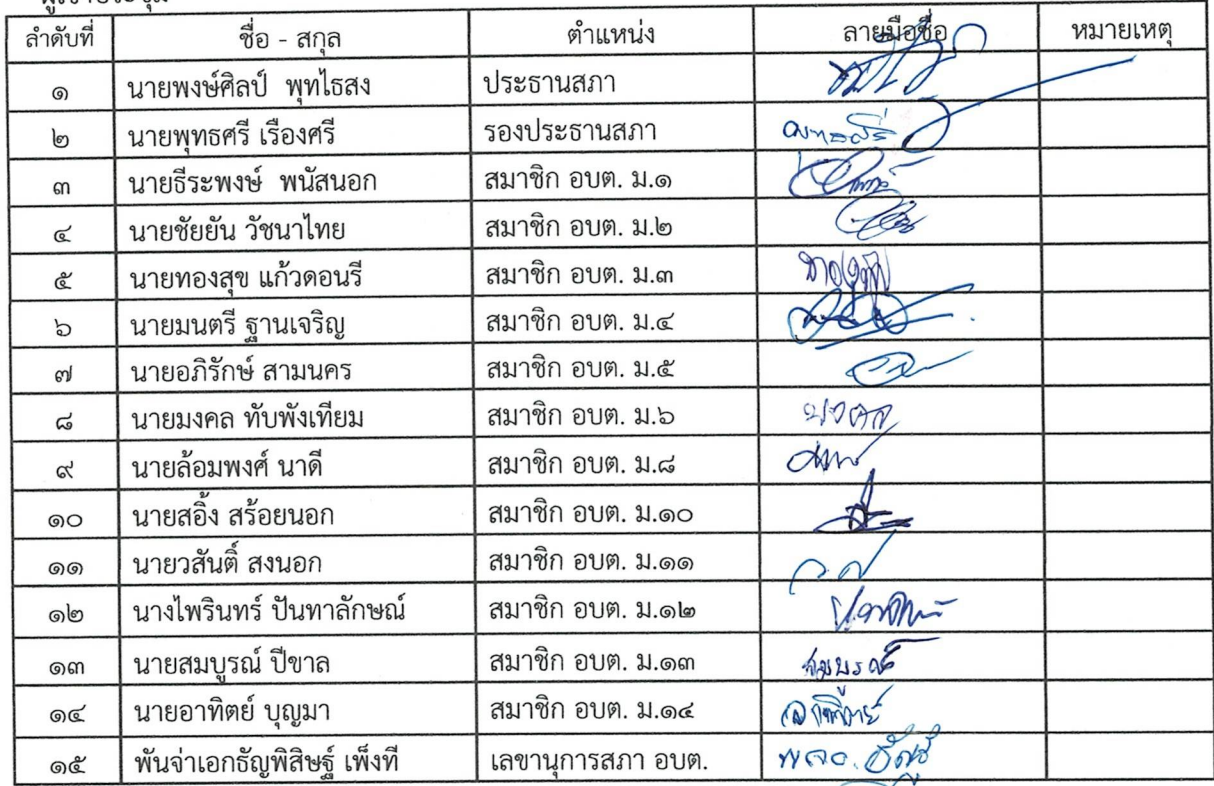 ลำดับที่ ชื่อ - สกุล ตำแหน่ง ลายมือชื่อ หมายเหตุ
๑ นายพงษ์ศิลป์ พุทไธสง ประธานสภา
๒ นายพุทธศรี เรืองศรี รองประธานสภา
๓ นายธีระพงษ์ พนัสนอก สมาชิก อบต. ม.๑
๔ นายชัยยัน วัชนาไทย สมาชิก อบต. ม.๒
๕ นายทองสุข แก้วดอนรี สมาชิก อบต. ม.๓
๖ นายมนตรี ฐานเจริญ สมาชิก อบต. ม.๔
๗ นายอภิรักษ์ สามนคร สมาชิก อบต. ม.๕
๘ นายมงคล ทับพังเทียม สมาชิก อบต. ม.๖ มงคล
๙ นายล้อมพงศ์ นาดี สมาชิก อบต. ม.๘
๑๐ นายสอิ้ง สร้อยนอก สมาชิก อบต. ม.๑๐
๑๑ นายวสันติ์ สงนอก สมาชิก อบต. ม.๑๑
๑๒ นางไพรินทร์ ปันทาลักษณ์ สมาชิก อบต. ม.๑๒
๑๓ นายสมบูรณ์ ปีขาล สมาชิก อบต. ม.๑๓ สมบูรณ์
๑๔ นายอาทิตย์ บุญมา สมาชิก อบต. ม.๑๔ อาทิตย์
๑๕ พันจ่าเอกธัญพิสิษฐ์ เพ็งที เลขานุการสภา อบต.